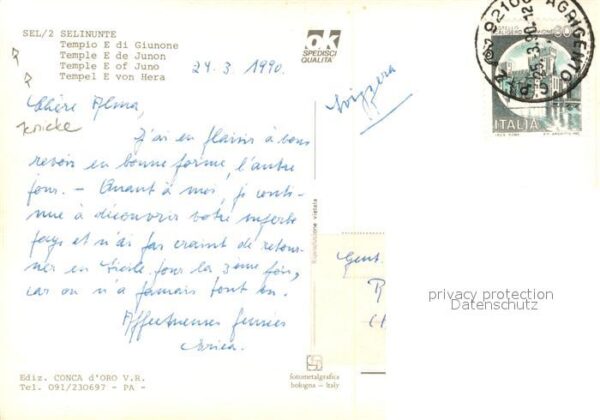 SEL/2 SELINUNTE
Tempio E di Giunone
Temple E de Junon
Temple E of Juno
Tempel E von Hera
ok
SPEDISCI
QUALITA'
24.3.1990.
Svizzera
Chère Alma,
J'ai eu plaisir à vous
revoir en bonne forme, l'autre
jour. - Quant à moi, je conti-
nue à découvrir votre superbe
pays et n'ai pas craint de retour-
ner en Sicile pour la 3ème fois,
car on n'a jamais tout vu.
Affectueuses pensées
Riproduzione vietata
Gent.
92100 AGRIGENTO
25.3.90.12
ITALIA
privacy protection
Datenschutz
Ediz. CONCA d'ORO V.R.
Tel. 091/230697 - PA -
fotometalgrafica
bologna - Italy